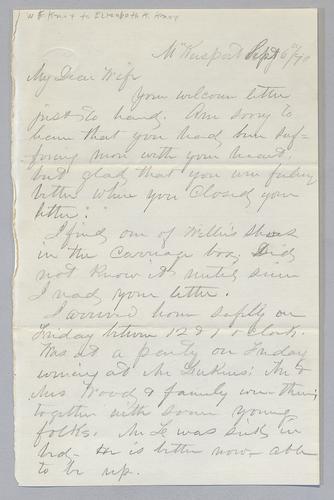 W F Knox to Elizabeth K. Knox
McKeesport Sept 6th/70
My Dear Wife
Your welcom letter
just to hand. Am sorry to
hear that you had been suf-
fering more with your heart,
but glad that you were feeling
better when you closed your
letter.
I find one of Willie's shoes
in the carriage box, Did
not know it until since
I read your letter.
I arrived home safely on
Friday between 12 & 1 o clock.
Was at a party on Friday
evening at Mr
Mrs Wood & family were there
together with some young
folks. Mr was sick in
bed - He is better now - able
to be up.